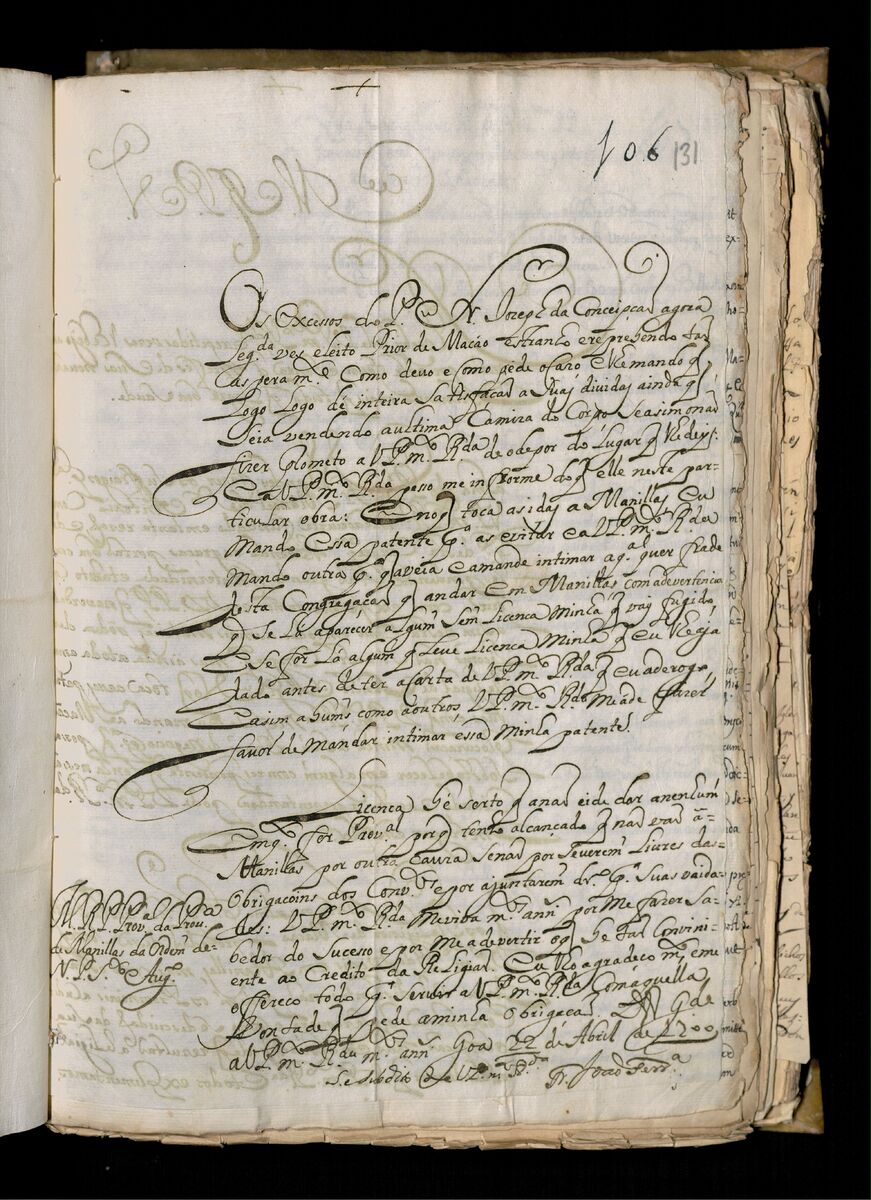 106 131
Os excessos do P.e Fr. Joseph da Conceipcaõ agora
Seg.da ves eleito Prior de Macao estranho e reprehendo taõ
asperam.te Como devo e como pede o caso e lhe mando q
Logo Logo dé inteira Satisfacaõ a Suas dividas ainda q
Seia vendendo a ultima Camiza do Corpo Se asim o naõ
fizer prometo a V.P. m.to R.da de o depor do Lugar q lhe dey:
E a V.P. m.to R.da peço me informe do q elle neste par-
ticular obra: E no q toca as idas a Manillas Eu
Mando Essa patente p.a as evitar e a V.P. m.to R.da
Mando outra p.a q a veia e a mande intimar a q.al quer frade
desta Congregacaõ q andar em Manillas com advertencia
q Se Lá aparecer algum Sem Licenca Minha q vai fugido
E se for Lá algum q Leve Licenca Minha q eu lhe eja
dado antes de ter a Carta de V.P. m.to R.da q eu a derogo
E asim a huns como a outros V.P. m.to R.da Me ade fazer
favor de Mandar intimar essa Minha patente.
Licenca hé serto q a naõ eide dar a nenhum
Emq.to for Prov.al porq tenho alcancado q naõ vaõ á-
Manillas por outra Cauza Senaõ por Severem Livres das-
Obrigacoins dos Conv.tos e por ajuntarem dr.o p.a Suas vaida-
des: V.P. m.to R.da Me viva m.tos ann.s por Me fazer Sa-
bedor do Sucesso e por Me advertir o q he taõ Convini-
ente ao Credito da Religiaõ. Eu lho agradeco m.to e me
offereco todo p.a Servir a V.P. m.to R.da Com aquella
Vontade q pede a minha obrigacaõ. D.s G.de
a V.P. m.to R.da m.tos ann.s Goa 22 de Abril de 1700
S.e Subdito de V.P. m.to R.da
Fr. Joaõ Ferr.a
M.R.P. Prov.al da Prov.a
de Manillas da Ordem de-
N.P. S.to Aug.o